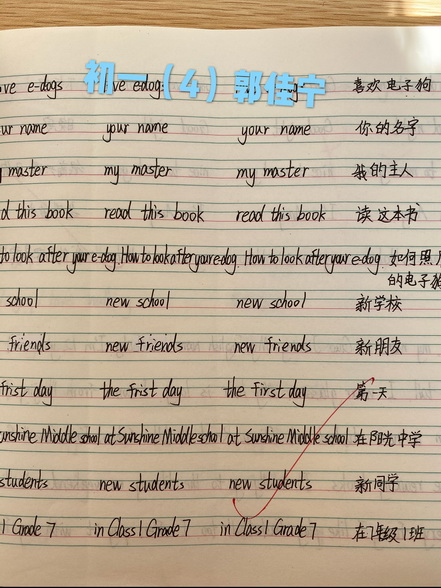 初一（4）郭佳宁
ve e-dogs ve edog 喜欢电子狗
ur name your name your name 你的名字
y master my master my master 我的主人
d this book read this book read this book 读这本书
to look after your e-dog. How to look after your e-dog. How to look after your e-dog. 如何照
的电子狗
school new school new school 新学校
friends new friends new friends 新朋友
frist day the frist day the first day 第一天
unshine Middle school at Sunshine Middle school at Sunshine Middle school 在阳光中学
students new students new students 新同学
1 Grade 7 in Class 1 Grade 7 in Class 1 Grade 7 在7年级1班